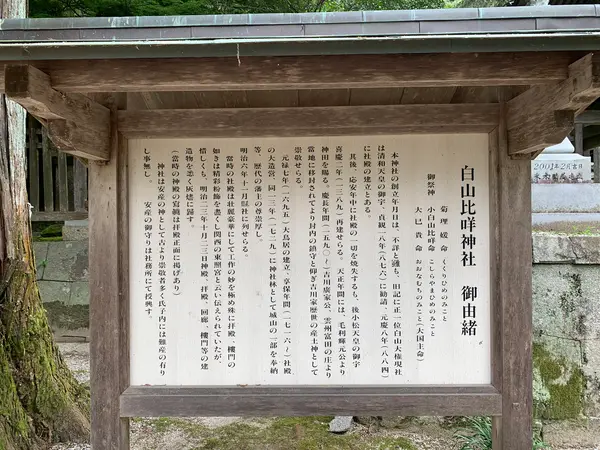 白山比咩神社　御由緒
御祭神　菊理媛命　くくりひめのみこと
小白山比咩命　こしらやまひめのみこと
大己貴命　おおなむちのみこと(大国主命)
本神社の創立年月日は、不詳と雖も、旧記に正一位白山大権現社
は清和天皇の御宇、貞観一八年(八七六)に勧請、元慶八年(八八4)
に社殿の建立とある。
其後、応安年中に社殿の一切を焼失するも、後小松天皇の御宇
喜慶二年(一三八九)再建せらる。天正年間には、毛利輝元公より
神田を賜る。慶長年間(一五九〇〜)吉川廣家公、雲州富田の庄より
當地に移封されてより封内の鎮守と仰ぎ吉川家歴世の産土神として
崇敬せらる。
元禄七年(一六九五)大鳥居の建立、享保年間(一七一六〜)社殿
の大造営、同一三年(一七二九)に神社林として城山の一部を奉納
等、歴代の藩主の尊崇厚し。
明治六年十一月縣社に列せらる。
當時の社殿は壮麗豪華にして工作の妙を極め殊に拝殿、樓門の
如きは精彩粉飾を盡くし関西の東照宮と云い伝えられていたが、
惜しくも、明治二三年十月二三日神殿、拝殿、回廊、樓門等の建
造物を悉く灰燼に歸す。
(當時の神殿の寫眞は拝殿正面に掲げあり)
神社は安産の神として古より崇敬者多く氏子内には難産の有り
し事無し。　安産の御守りは社務所にて授興す。
2001年2月吉日